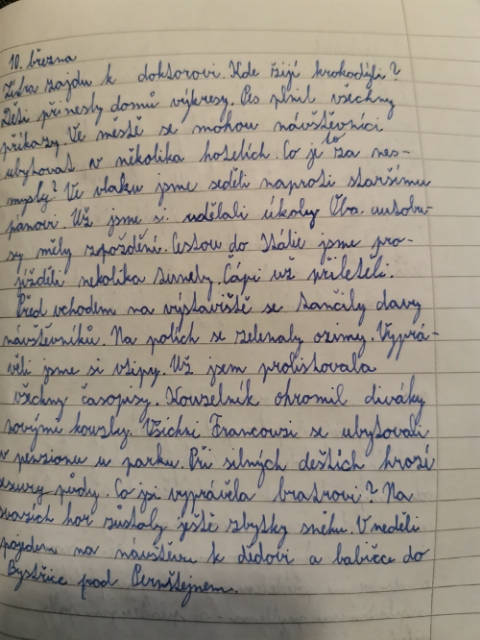 10. března
Zítra zajdu k doktorovi. Kde žijí krokodýli?
Děti přinesly domů výkresy. Pes plnil všechny
příkazy. Ve městě se mohou návštěvníci
ubytovat v několika hotelích. Co je to za nes-
mysly? Ve vlaku jsme seděli naproti staršímu
pánovi. Už jsme si udělali úkoly. Oba autobu-
sy měly zpoždění. Cestou do Itálie jsme pro-
jížděli nekolika tunely. Čápi už přiletěli.
Před vchodem na výstaviště se tančily davy
návštěvníků. Na polích se zelenaly ozimy. Vyprá-
věli jsme si vtipy. Už jsem prolistovala
všechny časopisy. Kouzelník ohromil diváky
novými kouzly. Všichni Francouzi se ubytovali
v penzionu u parku. Při silných deštích hrozí
sesuvy půdy. Co jsi vyprávěla bratrovi? Na
svazích hor zůstaly ještě zbytky sněhu. V neděli
pojedem na návštěvu k dědovi a babičce do
Bystřice pod Pernštejnem.